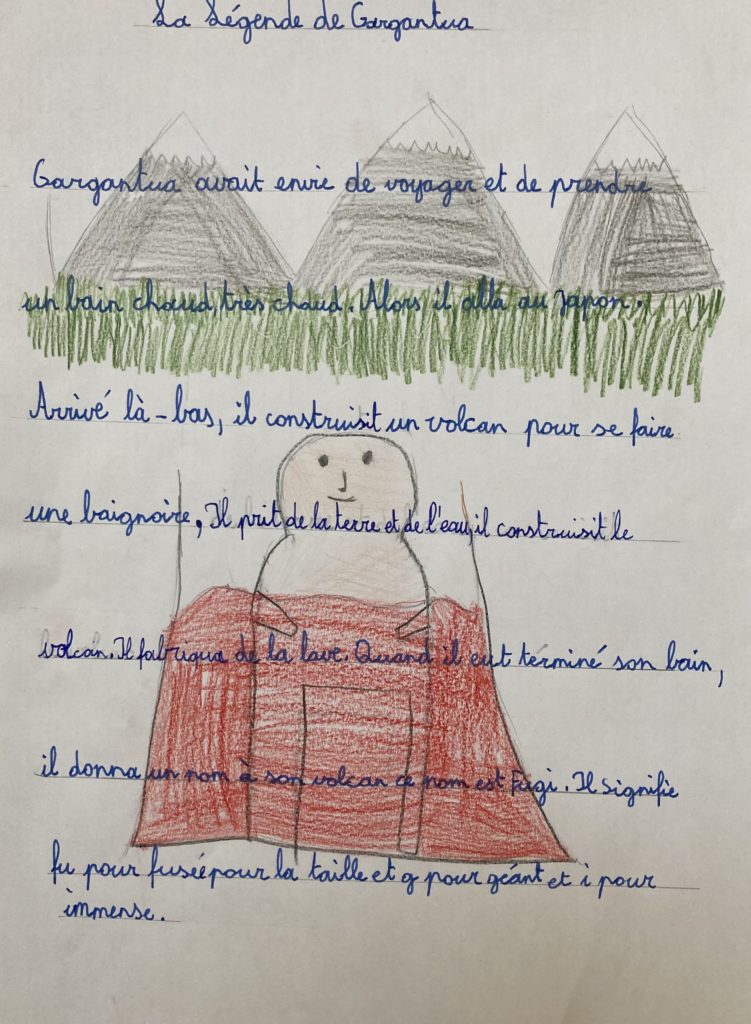 La Légende de Gargantua
Gargantua avait envie de voyager et de prendre
un bain chaud, très chaud. Alors il alla au Japon.
Arrivé là-bas, il construisit un volcan pour se faire
une baignoire, Il prit de la terre et de l'eau, il construisit le
volcan. Il fabriqua de la lave. Quand il eut terminé son bain,
il donna un nom à son volcan ce nom est Fugi. Il signifie
fu pour fusée pour la taille et g pour géant et i pour
immense.